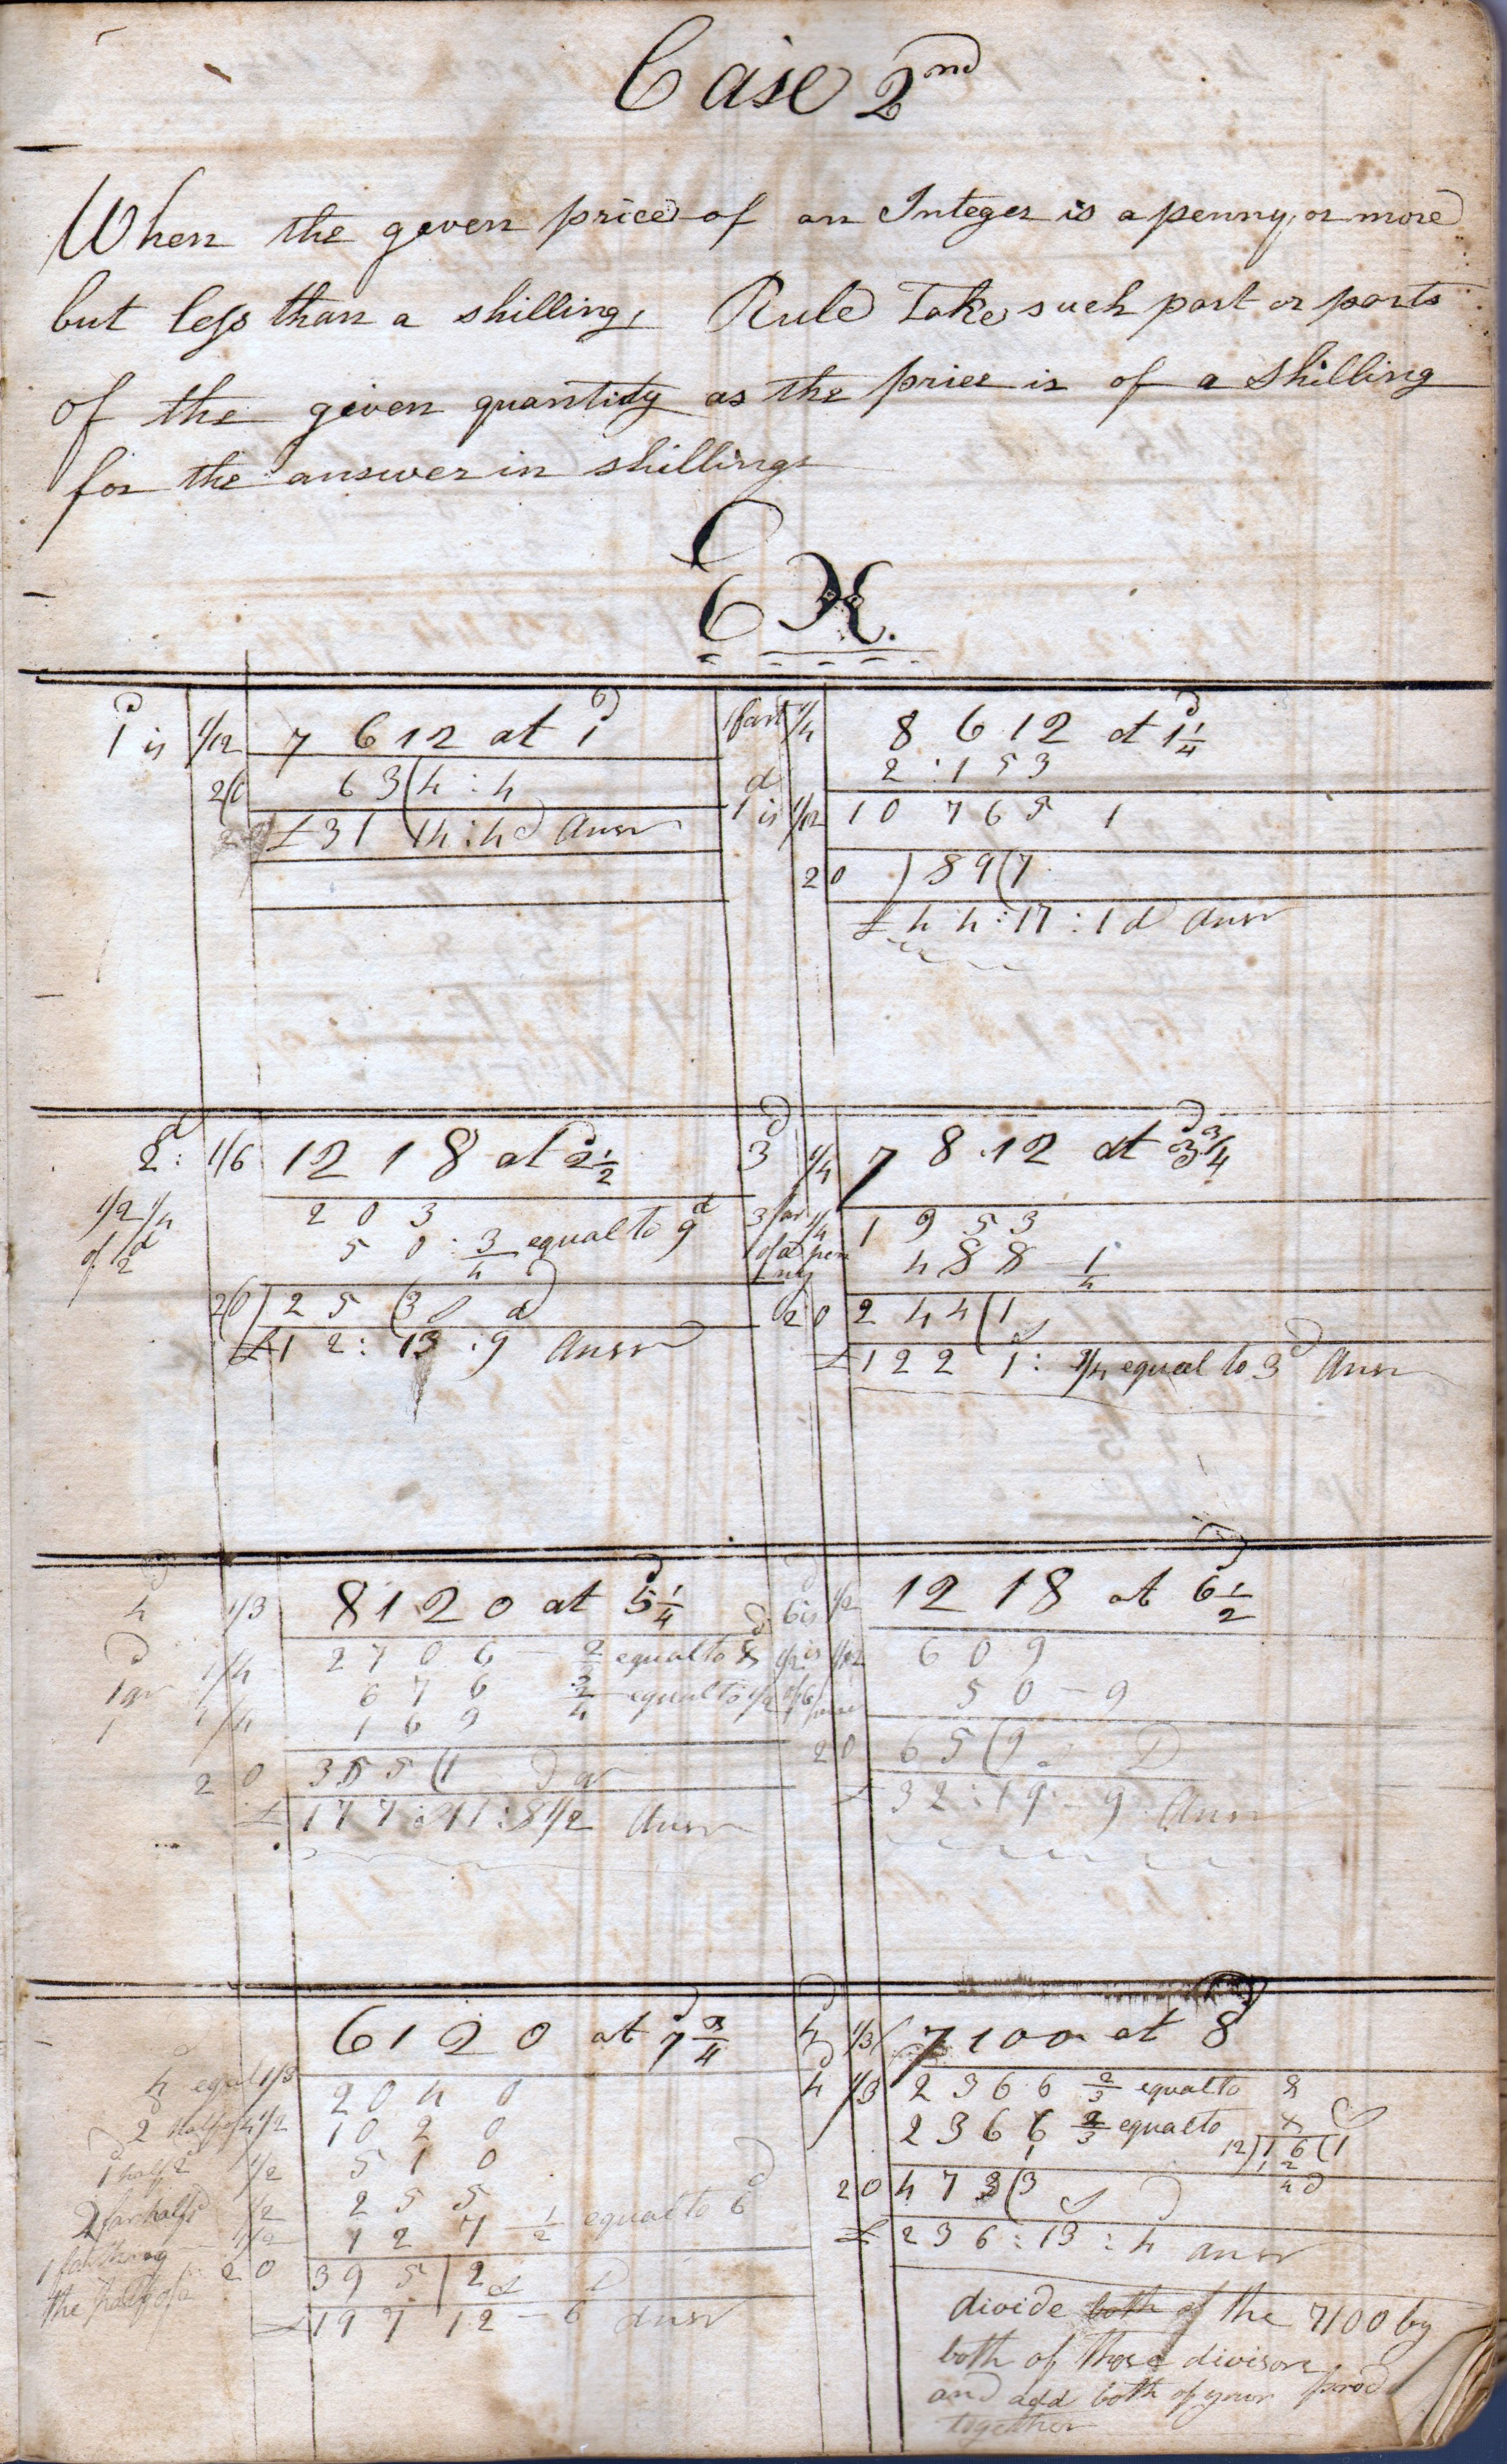 Case 2nd
When the given price of an Integer is a penny or more
but less than a shilling, Rule Take such part or parts
of the given quantity as the price is of a Shilling
for the answer in shillings
EX.
1d is 1/12 7612 at 1d
20 63(4 : 4
£31 14 : 4d Answ
1 fart 1/4 8612 at 1 1/4 d
2 : 153
1d is 1/12 10 765 1
20 ) 89(7
£44 : 17 : 1d Answ
2d : 1/6 1218 at 2 1/2 d
203
1/2 1/4 of 2d 50 : 3/4 equal to 9d
20) 25(3 s d
£12 : 13 : 9 Answ
3d 1/4 7812 at 3 3/4 d
1953
3 far 1/4 488 1/4
20 244(1 s
£122 1 : 1/4 equal to 3d Answ
4d 1/3 8120 at 5 1/4 d
1d 1/4 2706 2/3 equal to 8d
1 qr 1/4 676 2/3
169
20 355(1 d qr
£177 : 11 : 8 1/2 Answ
6d is 1/2 1218 at 6 1/2 d
1/2 is 1/12 609
of 6 pence 50 - 9
20 65(9 s D
£32 : 19 : 9 Answ
6120 at 7 3/4 d
4 equal 1/3 2040
2 half of 4 1/2 1020
1d half 2d 1/2 510
2 far half d 1/2 255
1 farthing 1/2 127 1/2 equal to 6d
the half of 2 20 395|2 s D
£197 12 - 6 Answ
4d 1/3 7100 at 8d
4d 1/3 2366 2/3 equal to 8
2366 2/3 equal to 8 s
12)16(1
12
4d
20 473(3 s D
£236 : 13 : 4 answ
divide both of the 7100 by
both of those divisors
and add both of your prod
together